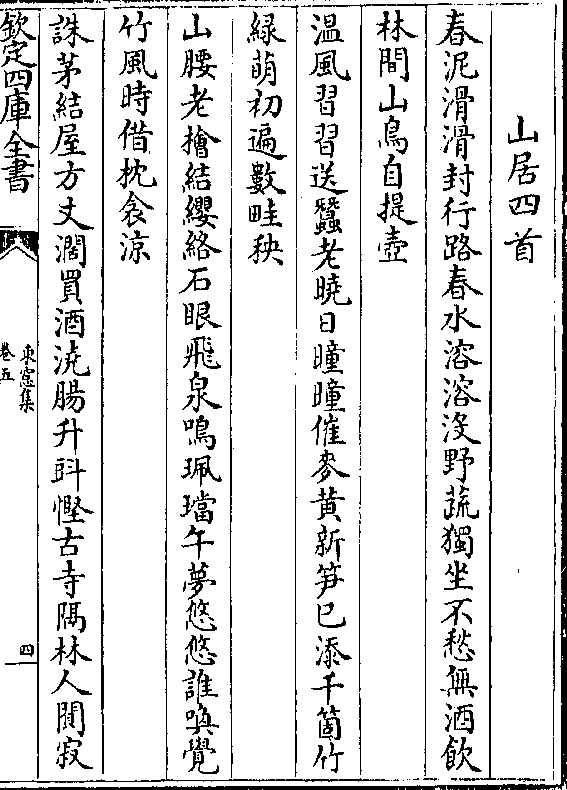 山居四首
春泥滑滑封行路春水溶溶沒野蔬獨坐不愁無酒飲
林間山鳥自提壺
温風習習送蠶老曉日曈曈催麥黄新笋已添千箇竹
緑萌初遍數畦秧
山腰老檜結纓絡石眼飛泉鳴珮璫午夢悠悠誰喚覺
竹風時借枕衾涼
誅茅結屋方丈濶買酒澆腸升㪷慳古寺隅林人閴寂
欽定四庫全書
東窓集
卷五
四